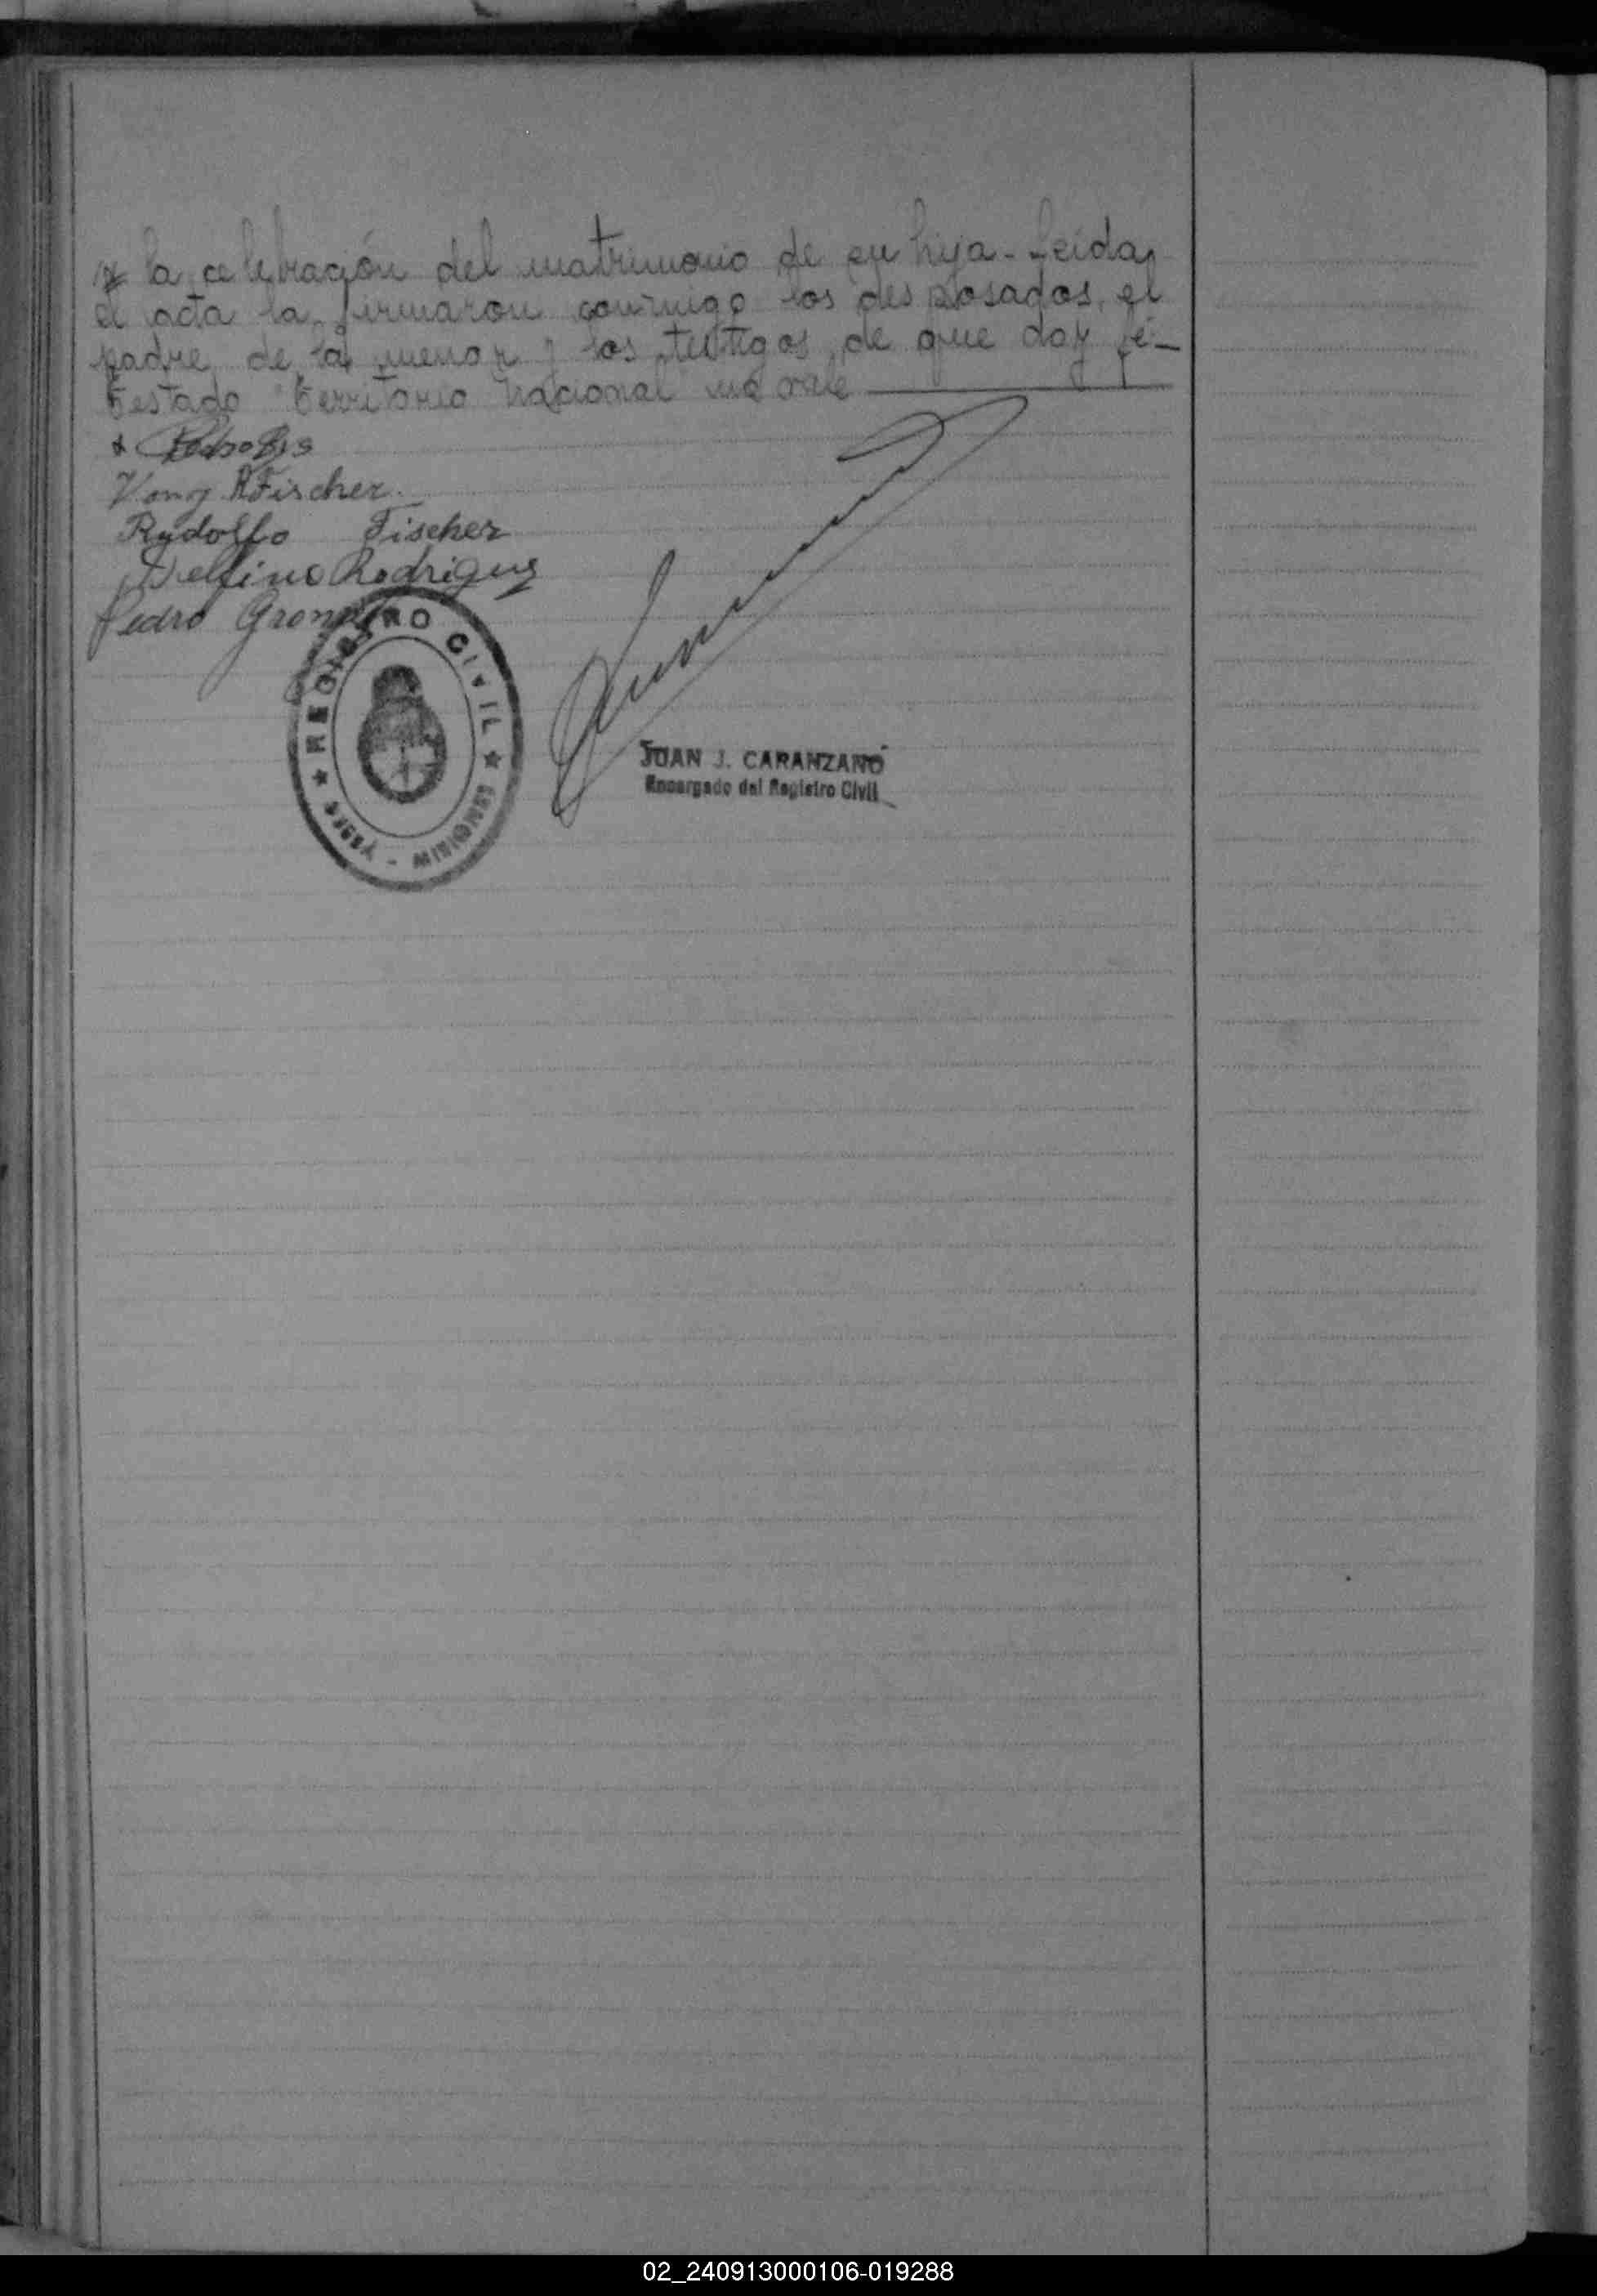 la celebración del matrimonio de su hija - Leída
el acta la firmaron conmigo los desposados, el
padre de la menor y los testigos, de que doy fé -
Testado "Territorio Nacional" no vale
Pedro
Fischer.
Rodolfo Fischer
Delfino Rodrigues
Pedro
REGISTRO CIVIL
MISIONES
JUAN J. CARANZANO
Encargado del Registro Civil
02_240913000106-019288